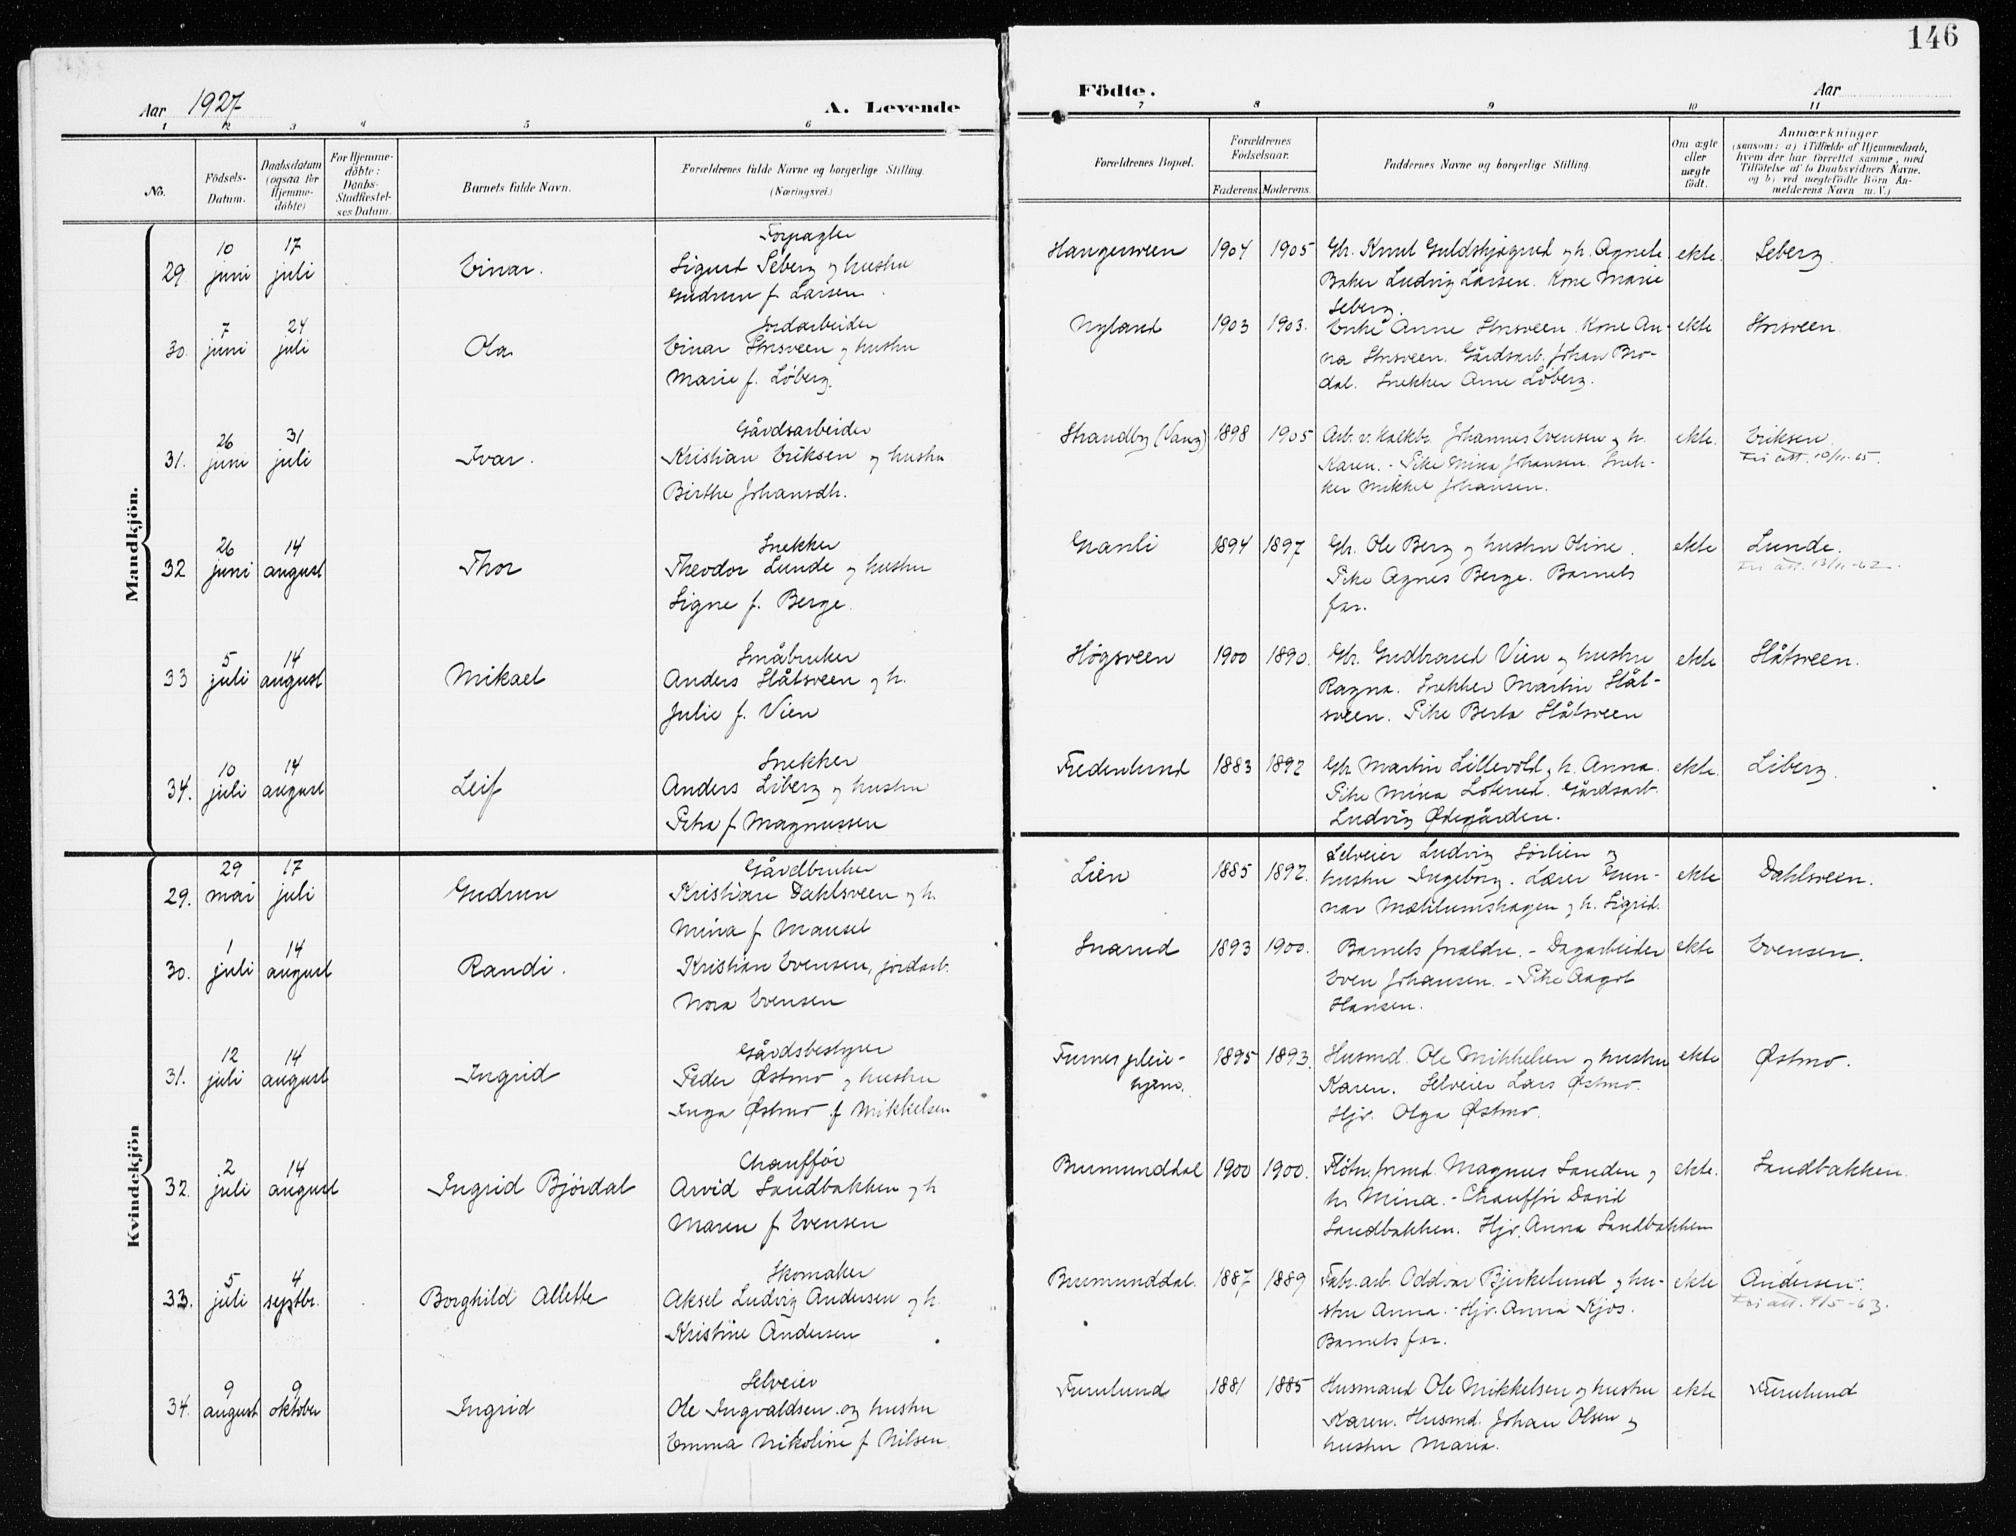 146
Aar 1927
A. Levende
Födte.
Aar
1 2 3 4 5 6 7 8 9 10 11
No.
Födsels-
Datum.
Daabsdatum
(ogsaa for
Hjemme-
döbte)
For Hjemme-
döbte:
Daabs-
Stadfæstel-
ses Datum.
Barnets fulde Navn.
Forældrenes fulde Navne og borgerlige Stilling.
(Næringsvei.)
Forældrenes Bopæl.
Forældrenes
Födselsaar.
Faderens.
Moderens.
Faddernes Navne og borgerlige Stilling.
Om ægte
eller
uægte
födt.
Anmærkninger
(saasom: a) i Tilfælde af Hjemmedaab,
hvem der har forrettet samme, med
Tilföielse af to Daabsvidners Navne.
og b) ved uægtefödte Börn An-
melderens Navn m. V.)
Mandkjön.
29. 10 juni 17 juli Einar.
Forpagter
Sigurd Seberg og hustru
Gudrun f. Larsen.
Hangersveen 1904 1905
Gbr. Knut Guldskjøgrud og h. Agnete.
Baker Ludvig Larsen. Kone Marie
Seberg.
ekte. Seberg.
30. 7 juni 24 juli Ola
Jordarbeider
Einar Strisveen og hustru
Marie f. Løberg.
Nyland 1903 1903.
Enke Anne Strisveen. Kone An-
na Strisveen. Gårdsarb. Johan Bro-
dal. Snekker Arne Løberg.
ekte Strisveen.
31. 26 juni 31 juli Ivar.
Gårdsarbeider
Kristian Eriksen og hustru
Birthe Johansdtr.
Strandby (Vang) 1898 1905
Arb. v. kalkbr. Johannes Evensen og h.
Karen. - Pike Mina Johansen. Snek-
ker Mikkel Johansen.
ekte. Eriksen.
Fri att. 10/11-65.
32 26 juni 14 august Thor
Snekker
Theodor Lunde og hustru
Signe f. Berge.
Granli 1894 1897
Gbr. Ole Berg og hustru Oline.
Pike Agnes Berge. Barnets
far.
ekte Lunde.
Fri att. 13/11-62.
33 5 juli 14 august Mikael
Småbruker
Anders Slåtsveen og h.
Julie f. Vien
Høgsveen 1900 1890.
Gbr. Gudbrand Vien og hustru
Ragna. Snekker Martin Slåt-
sveen. Pike Berta Slåtsveen
ekte Slåtsveen.
34. 10 juli 14 august Leif
Snekker
Anders Liberg og hustru
Petra f. Magnussen
Fredenlund 1883 1892
Gbr. Martin Lillevold og h. Anna.
Pike Mina Loterud. Gårdsarb.
Ludvig Ødegården.
ekte. Liberg.
Kvindekjön
29. 29 mai 17 juli Gudrun
Gårdbruker
Kristian Dahlsveen og h.
Mina f. Mausel
Lien 1885 1892.
Selveier Ludvig Sørlien og
hustru Ingeborg. Lærer Gun-
nar Mæhlumshagen og h. Sigrid.
ekte Dahlsveen.
30. 1 juli 14 august Randi.
Kristian Evensen, jordarb.
Nora Evensen
Snarud 1893 1900.
Barnets foreldre. - Dagarbeider
Even Johansen. - Pike Aagot
Hansen.
ekte Evensen.
31. 12 juli 14 august Ingrid
Gårdsbestyrer
Peder Østmo og hustru
Inga Østmo f. Mikkelsen
Furnes pleie-
hjem. 1895 1893.
Husmd. Ole Mikkelsen og hustru
Karen. Selveier Lars Østmo.
Hjv. Olga Østmo.
ekte Østmo.
32. 2 juli 14 august Ingrid Bjørdal
Chauffør
Arvid Sandbakken og h
Maren f. Evensen
Brumunddal 1900 1900.
Fløtn.formd. Magnus Sanden og
h. Mina. - Chauffør David
Sandbakken. Hjv. Anna Sandbakken
ekte. Sandbakken.
33. 5 juli 4 septbr. Borghild Allette
Skomaker
Aksel Ludvig Andersen og h.
Kristine Andersen
Brumunddal. 1887 1889
Fabr.arb. Oddvar Bjerkelund og hu-
stru Anna. - Hjv. Anna Kjos.
Barnets far.
ekte Andersen.
Fri att. 4/5-63.
34. 9 august 9 oktober Ingrid
Selveier
Ole Ingvaldsen og hustru
Emma Nikoline f. Nilsen.
Furulund 1881 1885
Husmand Ole Mikkelsen og hustru
Karen. Husmd. Johan Olsen og
hustru Maria.
ekte Furulund